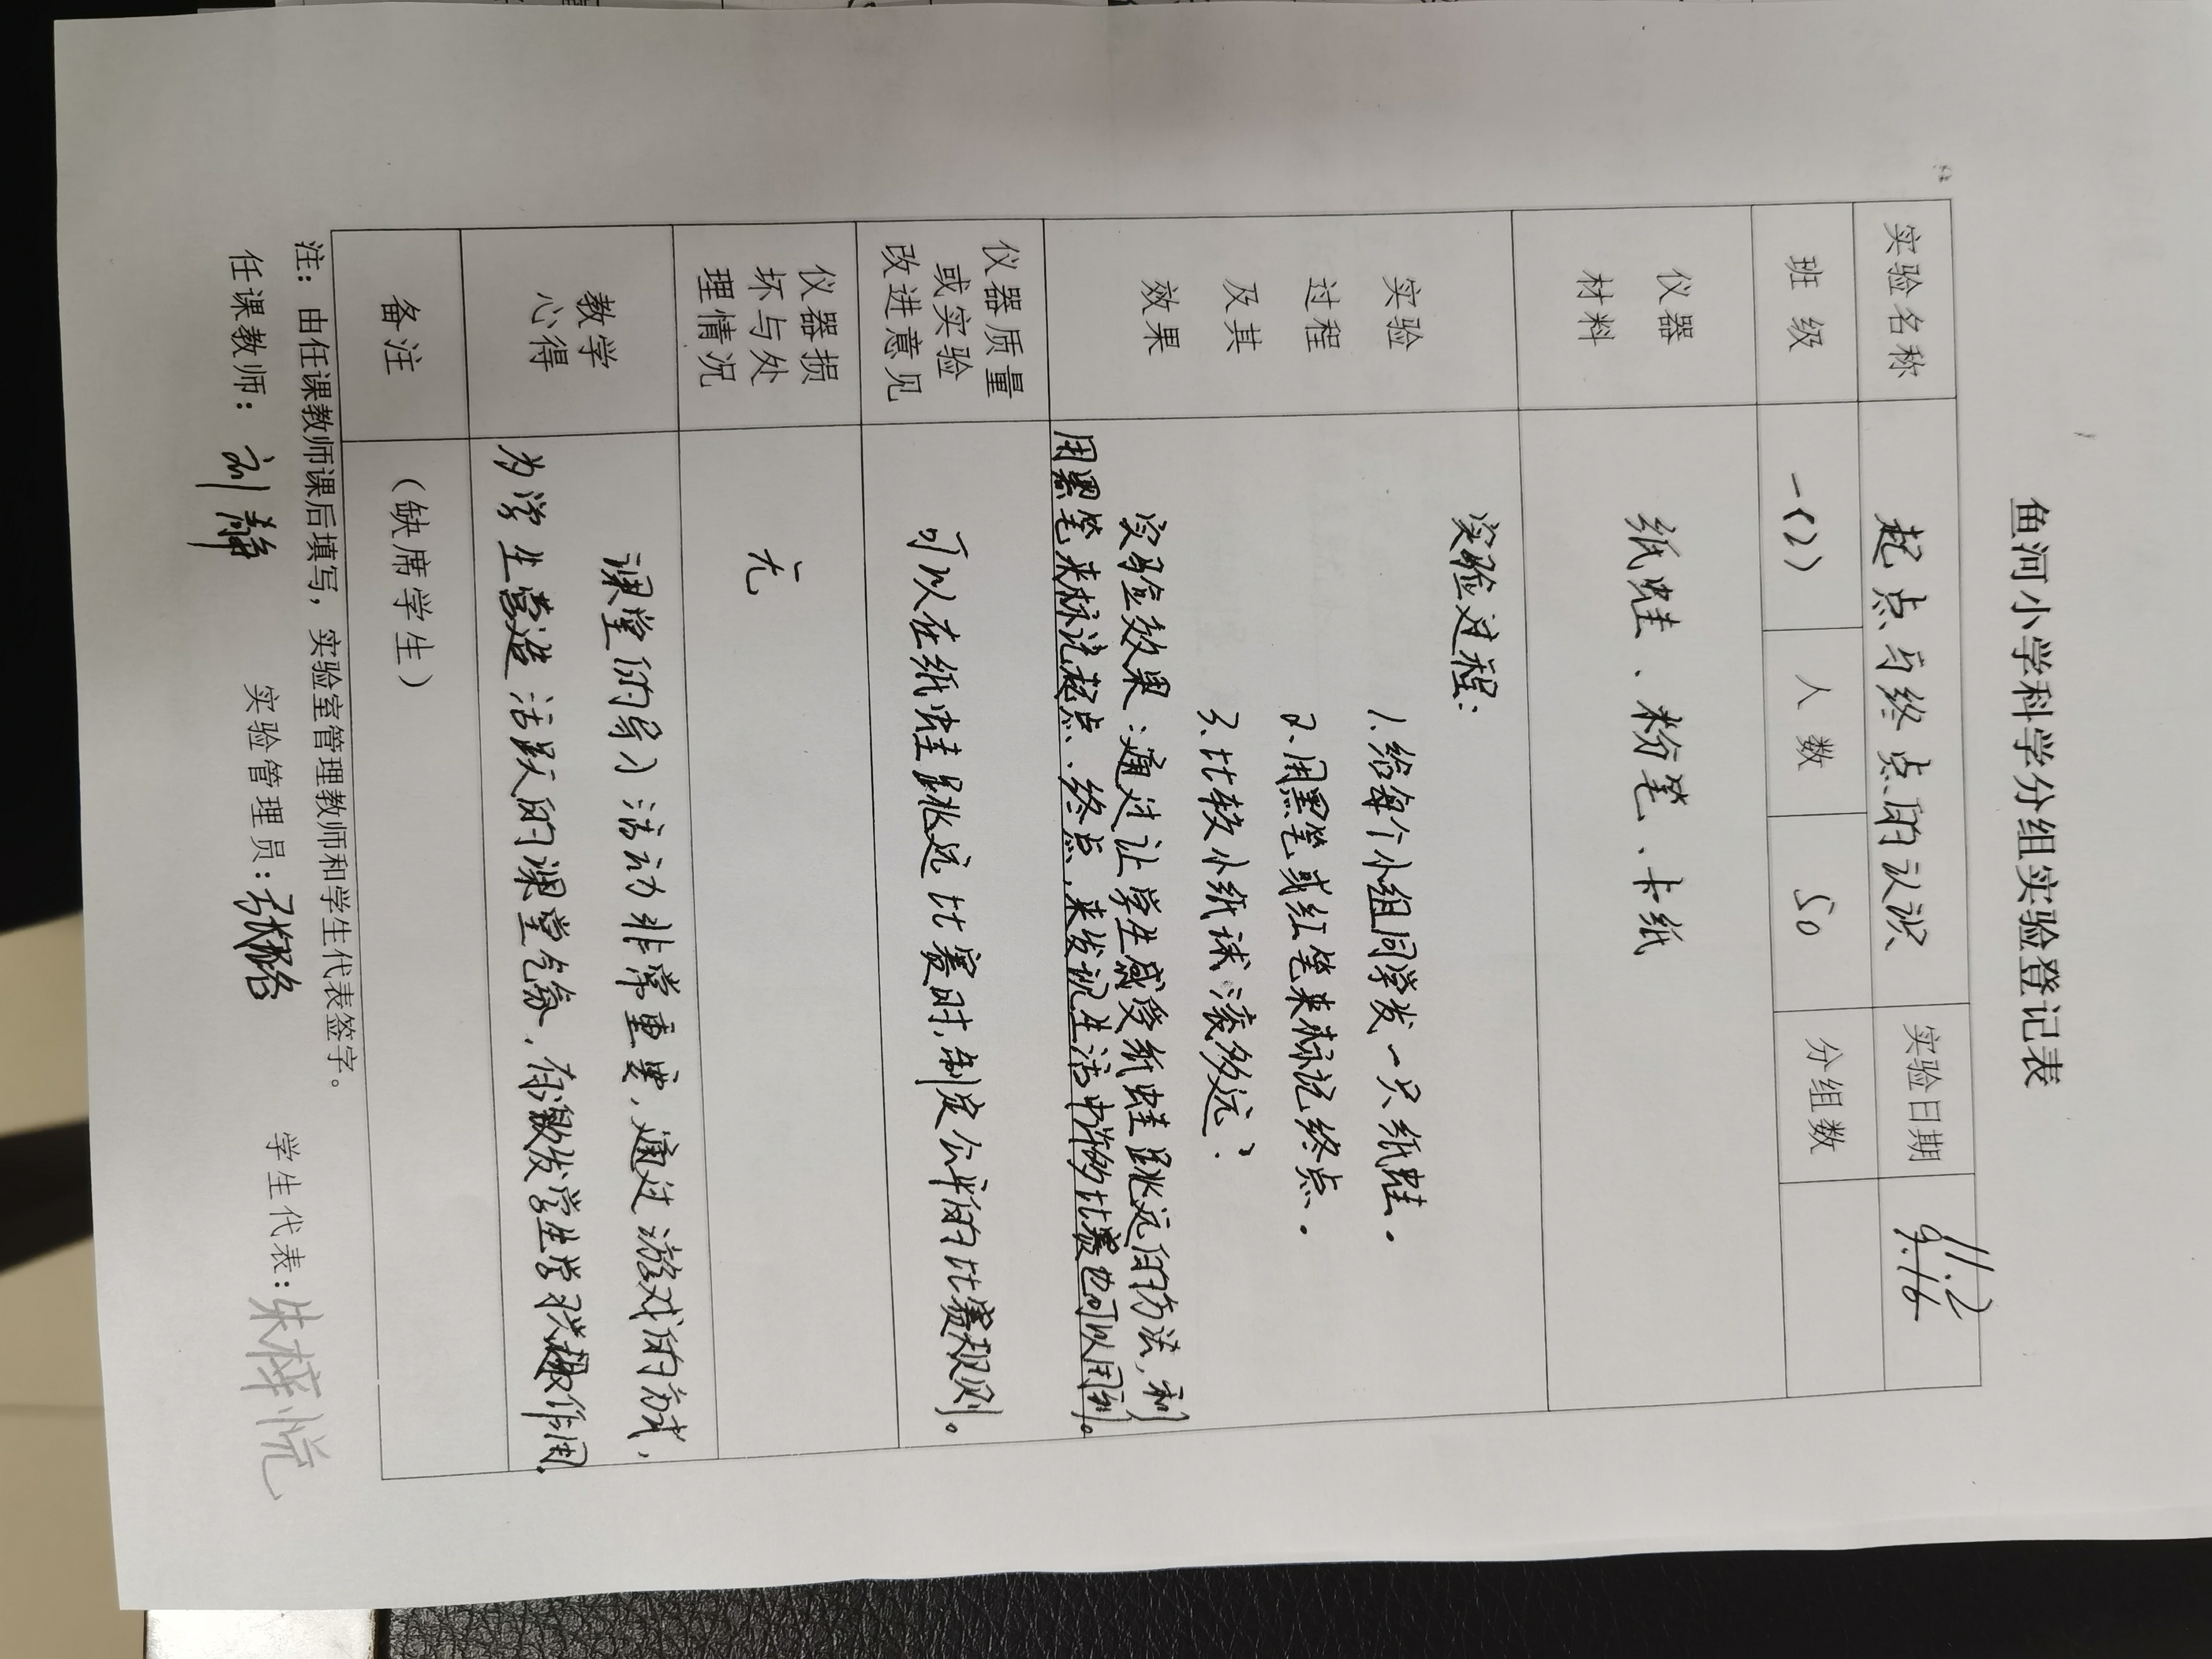 鱼河小学科学分组实验登记表
实验名称 起点与终点的认识 实验日期 11.2 9.16
班级 一(2) 人数 50 分组数
仪器材料 纸蛙、粉笔、卡纸
实验过程及其效果
实验过程:
1.给每个小组同学发一只纸蛙.
2.用黑笔或红笔来标记终点.
3.比较小纸球滚多远?
实验效果:通过让学生感受纸蛙跳远的方法,利
用黑笔来标记起点、终点,来发现生活中的比赛也可以用到。
仪器质量或实验改进意见
可以在纸蛙跳远比赛时,制定公平的比赛规则。
仪器损坏与处理情况
无
教学心得
课堂的导入活动非常重要,通过游戏的方式,
为学生营造活跃的课堂气氛,有激发学生学习兴趣作用.
备注 (缺席学生)
注:由任课教师课后填写,实验室管理教师和学生代表签字。
任课教师: 实验管理员: 学生代表:朱梓悦